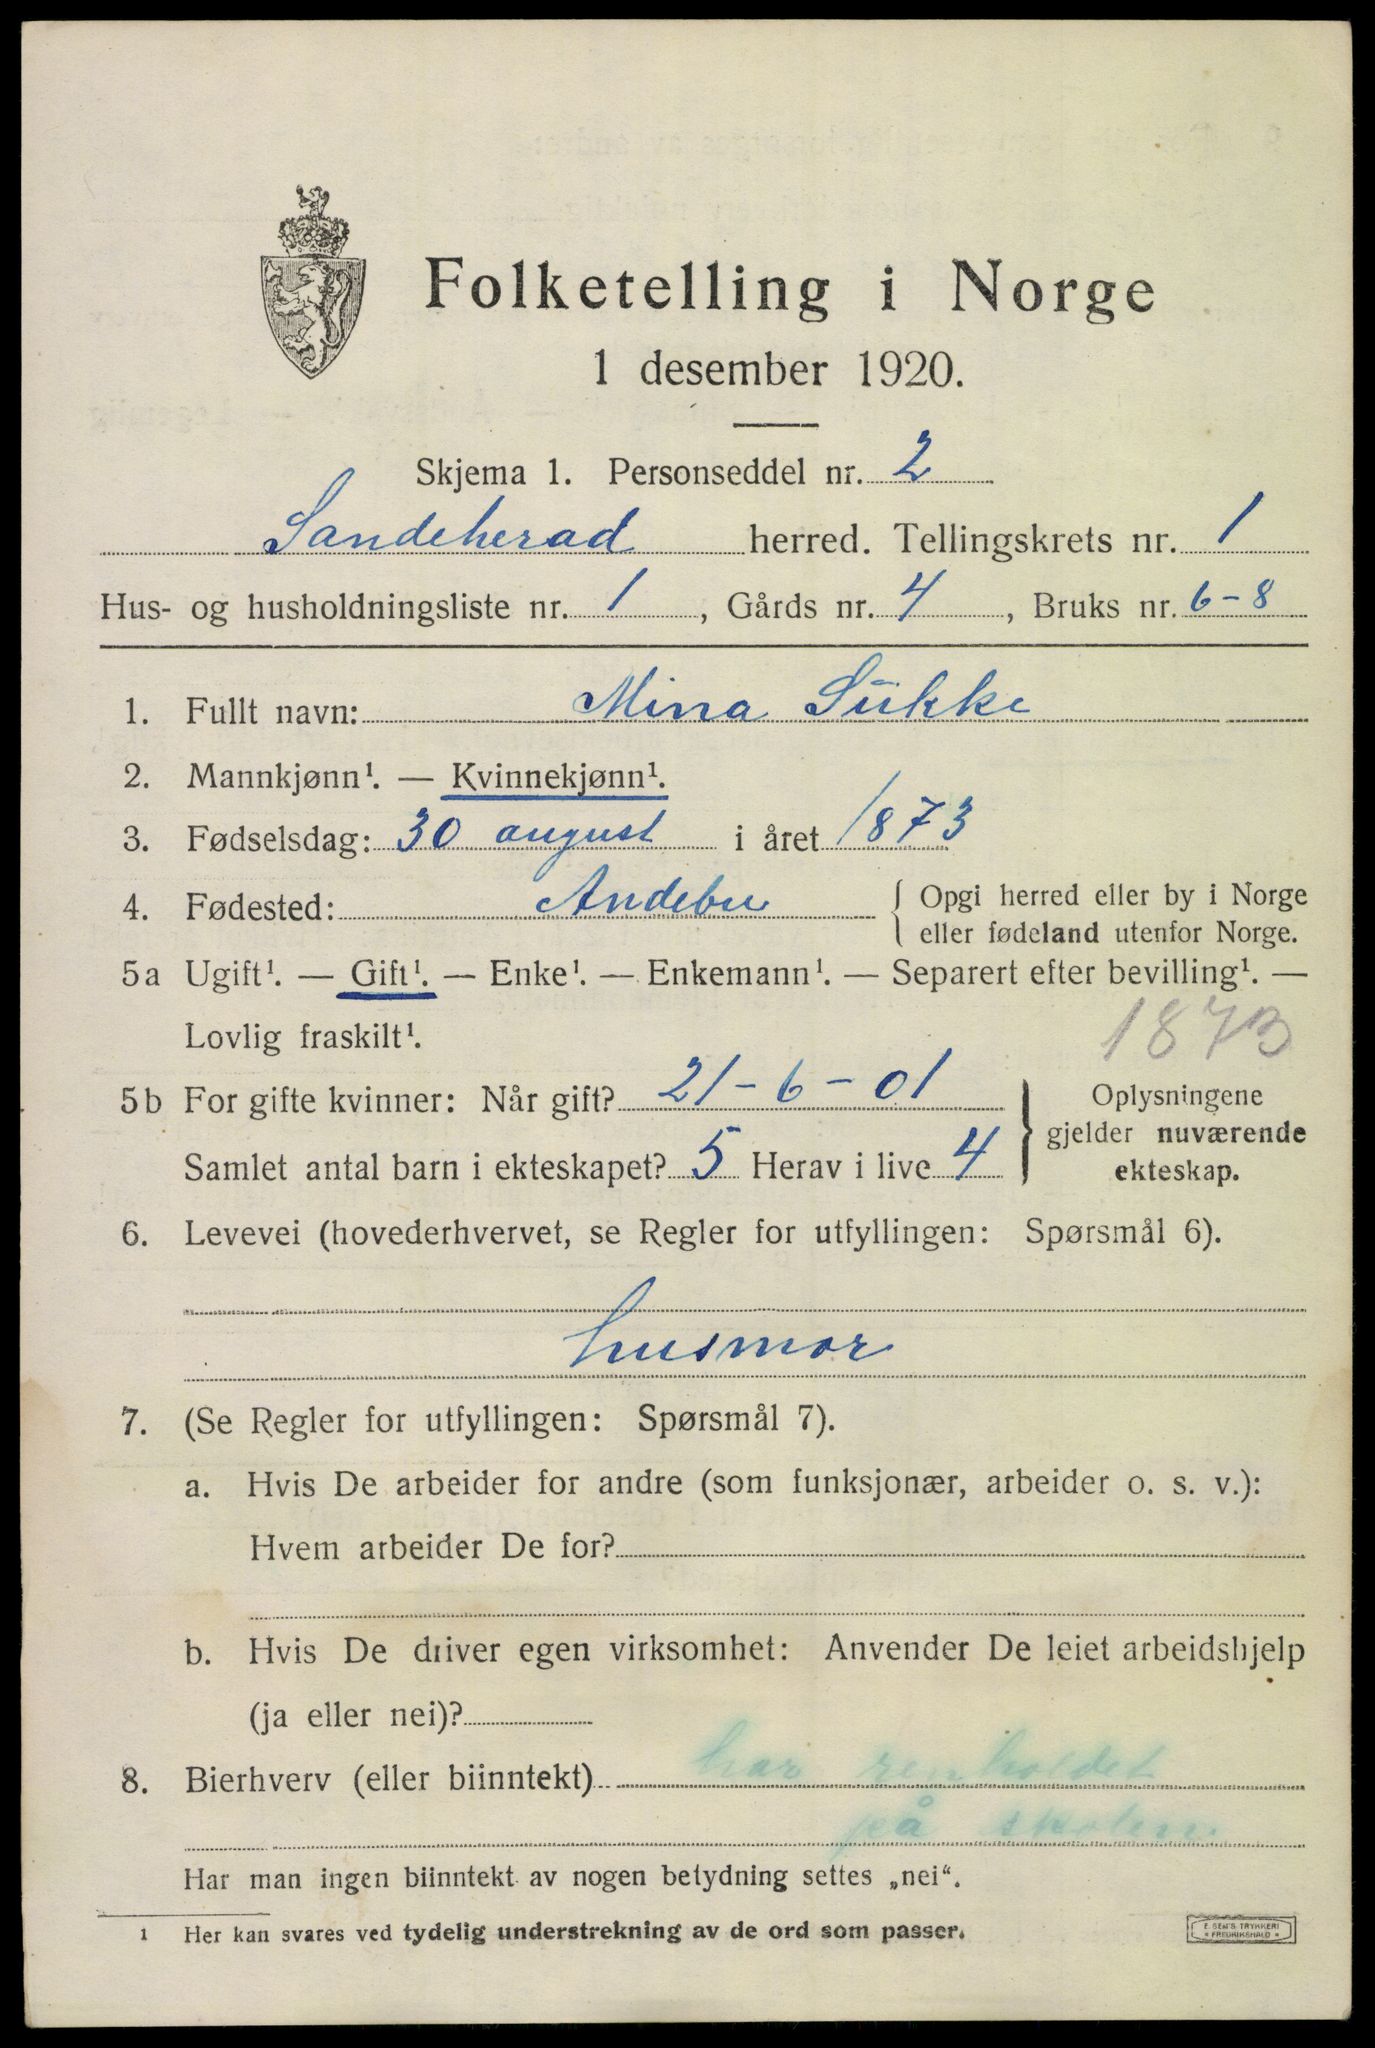 Folketelling i Norge
1 desember 1920.
Skjema 1. Personseddel nr. 2
Sandeherad herred. Tellingskrets nr. 1
Hus- og husholdningsliste nr. 1, Gårds nr. 4, Bruks nr. 6-8
1. Fullt navn: Mina Sukke
2. Mannkjønn¹. — Kvinnekjønn¹.
3. Fødselsdag: 30 august i året 1873
4. Fødested: Andebu { Opgi herred eller by i Norge
eller fødeland utenfor Norge.
5a Ugift¹. — Gift¹. — Enke¹. — Enkemann¹. — Separert efter bevilling¹. —
Lovlig fraskilt¹. 1873
5b For gifte kvinner: Når gift? 21-6-01
Samlet antal barn i ekteskapet? 5 Herav i live 4
} Oplysningene
gjelder nuværende
ekteskap.
6. Levevei (hovederhvervet, se Regler for utfyllingen: Spørsmål 6).
husmor
7. (Se Regler for utfyllingen: Spørsmål 7).
a. Hvis De arbeider for andre (som funksjonær, arbeider o. s. v.):
Hvem arbeider De for?
b. Hvis De driver egen virksomhet: Anvender De leiet arbeidshjelp
(ja eller nei)?
8. Bierhverv (eller biinntekt) har renholdet
på skolen.
Har man ingen biinntekt av nogen betydning settes „nei“.
1 Her kan svares ved tydelig understrekning av de ord som passer.
E. SEM'S TRYKKERI
* FREDRIKSHALD *